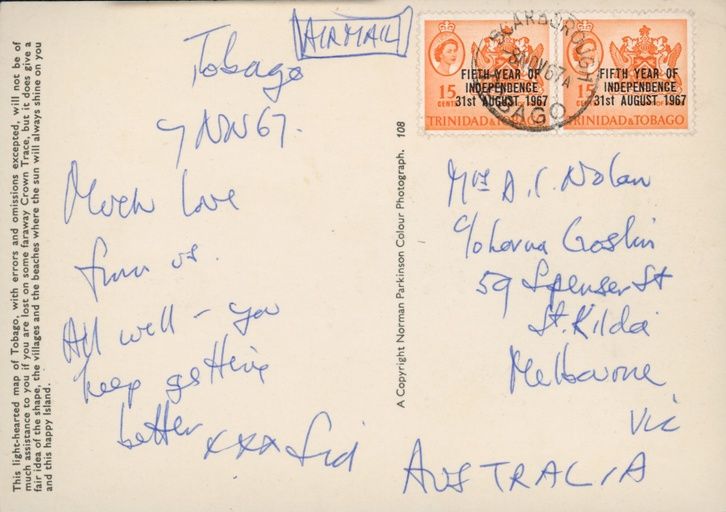 This light-hearted map of Tobago, with errors and omissions excepted, will not be of
much assistance to you if you are lost on some faraway Crown Trace, but it does give a
fair idea of the shape, the villages and the beaches where the sun will always shine on you
and this happy Island.
AIRMAIL
Tobago
7 NOV 67.
Much love
from us.
All well - you
keep getting
better
xxx Sid
A Copyright Norman Parkinson Colour Photograph. 108
15 CENTS
FIFTH YEAR OF
INDEPENDENCE
31st AUGUST 1967
TRINIDAD & TOBAGO
15 CENTS
FIFTH YEAR OF
INDEPENDENCE
31st AUGUST 1967
TRINIDAD & TOBAGO
SCARBOROUGH
8 NOV 67 A
TOBAGO
Mrs A. C. Nolan
c/o Lorna Goslin
59 Spenser St
St. Kilda
Melbourne
Vic
AUSTRALIA